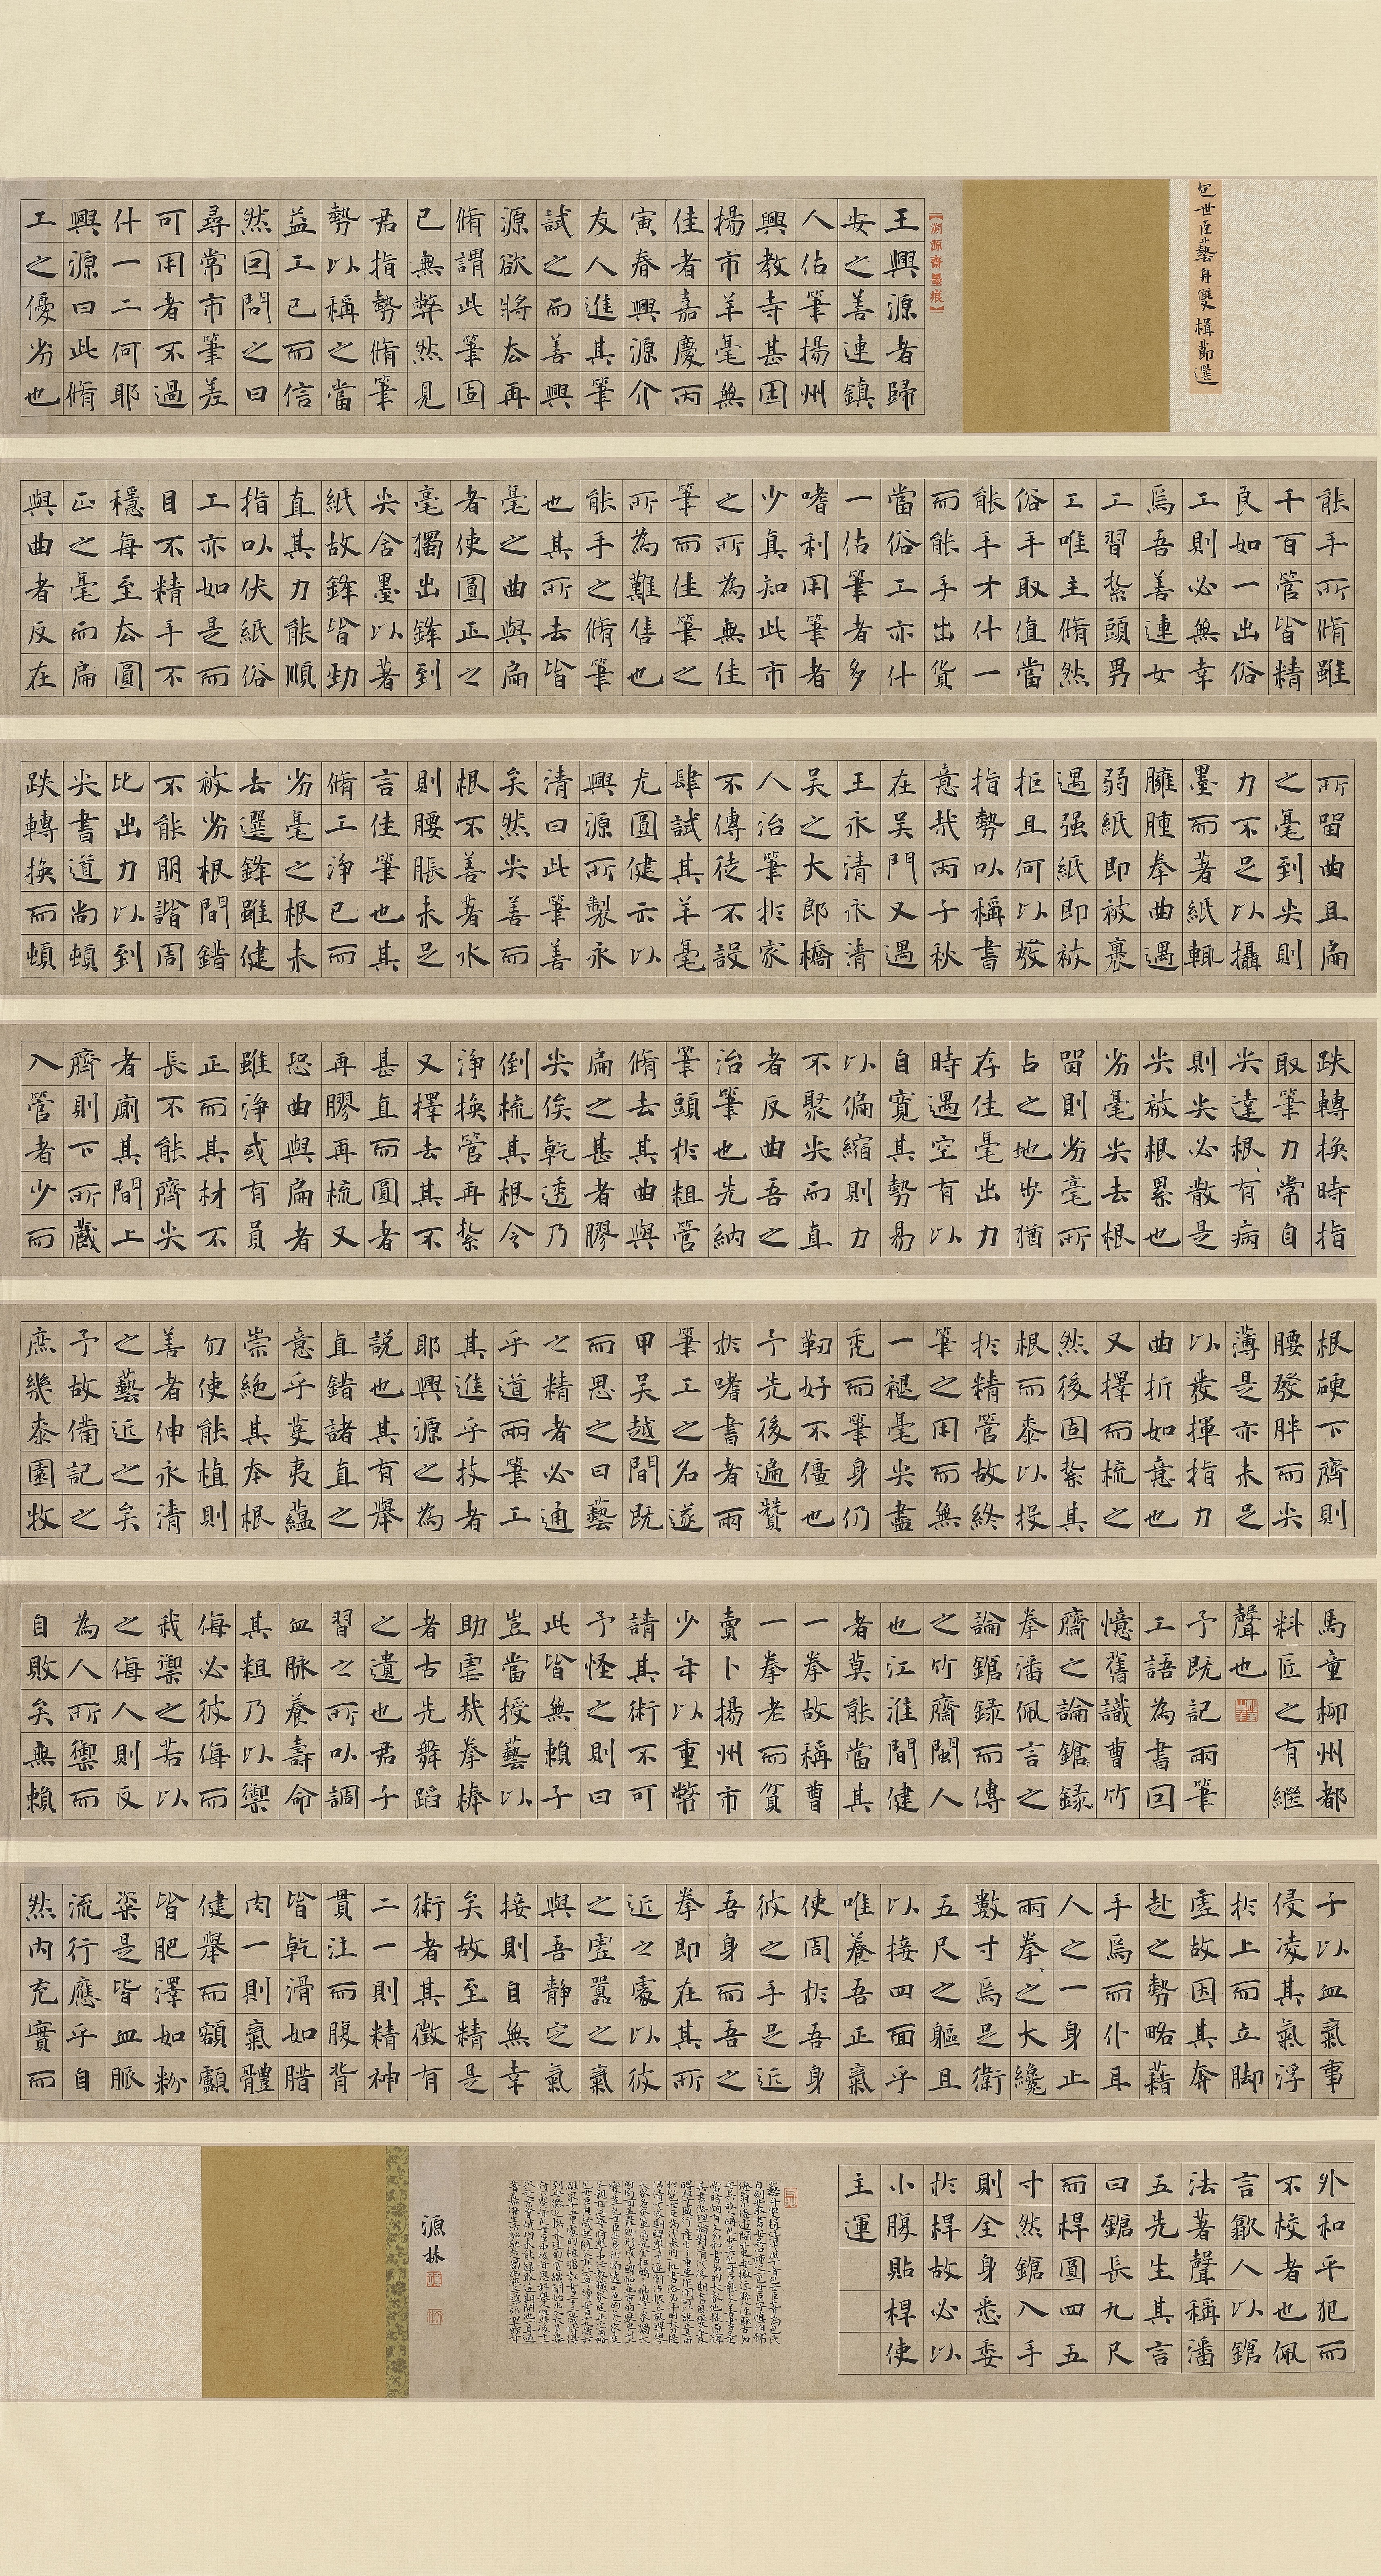 包世臣藝舟雙楫節選
【溯源齋墨痕】
王興源者歸
安之善連鎮
人佔筆揚州
興教寺甚困
揚市羊毫無
佳者嘉慶丙
寅春興源介
友人進其筆
試之而善興
源欲將去再
脩謂此筆固
已無弊然見
君指勢脩筆
勢以稱之當
益工已而信
然回問之曰
尋常市筆差
可用者不過
什一二何耶
興源曰此脩
工之優劣也
能手所脩雖
千百管皆精
良如一出俗
工則必無幸
焉吾善連女
工習紮頭男
工唯主脩然
俗手取值當
能手才什一
而能手出貨
當俗工亦什
一佔筆者多
嗜利用筆者
少真知此市
之所為無佳
筆而佳筆之
所為難售也
能手之脩筆
也其所去皆
毫之曲與扁
者使圓正之
毫獨出鋒到
尖含墨以著
紙故鋒皆勁
直其力能順
指以伏紙俗
工亦如是而
目不精手不
穩每至去圓
正之毫而扁
與曲者反在
所留曲且扁
之毫到尖則
力不足以攝
墨而著紙輒
臃腫拳曲遇
弱紙即被裹
遇强紙即被
拒且何以發
指勢以稱書
意哉丙子秋
在吳門又遇
王永清永清
吳之大郎橋
人治筆於家
不傳徒不設
肆試其羊毫
尤圓健示以
興源所製永
清曰此筆善
矣然尖善而
根不善著水
則腰脹未足
言佳筆也其
脩工淨已而
劣毫之根未
去選鋒雖健
被劣根間錯
不能朋諧周
比出力以到
尖書道尚頓
跌轉換而頓
跌轉換時指
取筆力常自
尖達根有病
則尖必散是
尖被根累也
劣毫尖去根
留則劣毫所
占之地步猶
存佳毫出力
時遇空有以
自寬其勢易
以偏縮則力
不聚尖而直
者反曲吾之
治筆也先納
筆頭於粗管
脩去其曲與
扁之甚者膠
尖俟乾透乃
倒梳其根令
淨換管再紮
又擇去其不
甚直而圓者
再膠再梳又
恐曲與扁者
雖淨或有員
正而其材不
長不能齊尖
者廁其間上
齊則下所藏
入管者少而
根硬下齊則
腰發胖而尖
薄是亦未足
以發揮指力
曲折如意也
又擇而梳之
然後固紮其
根而桼以投
於精管故終
筆之用而無
一褪毫尖盡
禿而筆身仍
韌好不僵也
予先後遍贊
於嗜書者兩
筆工之名遂
甲吳越間既
而思之曰藝
之精者必通
乎道兩筆工
其進乎技者
耶興源之為
說也其有舉
直錯諸直之
意乎芟夷蘊
崇絕其本根
勿使能植則
善者伸永清
之藝近之矣
予故備記之
庶幾桼園牧
馬童柳州都
料匠之有繼
聲也
予既記兩筆
工語為書回
憶舊識曹竹
齋之論鎗録
拳潘佩言之
論鎗録而傳
之竹齋閩人
也江淮間健
者莫能當其
一拳故稱曹
一拳老而貧
賣卜揚州市
少年以重幣
請其術不可
予怪之則曰
此皆無賴子
豈當授藝以
助虐哉拳棒
者古先舞蹈
之遺也君子
習之所以調
血脈養壽命
其粗乃以禦
侮必彼侮而
我禦之若以
之侮人則反
為人所禦而
自敗矣無賴
子以血氣事
侵凌其氣浮
於上而立脚
虛故因其奔
赴之勢略藉
手焉而仆耳
人之一身止
兩拳之大纔
數寸焉足衛
五尺之軀且
以接四面乎
唯養吾正氣
使周於吾身
彼之手足近
吾身而吾之
拳即在其所
近之處以彼
之虛囂之氣
與吾靜定氣
接則自無幸
矣故至精是
術者其徵有
二一則精神
貫注而腹背
皆乾滑如腊
肉一則氣體
健舉而額顱
皆肥澤如粉
粢是皆血脈
流行應乎自
然內充實而
外和平犯而
不校者也佩
言歙人以鎗
法著聲稱潘
五先生其言
曰鎗長九尺
而桿圓四五
寸然鎗入手
則全身悉委
於桿故必以
小腹貼桿使
主運
源林